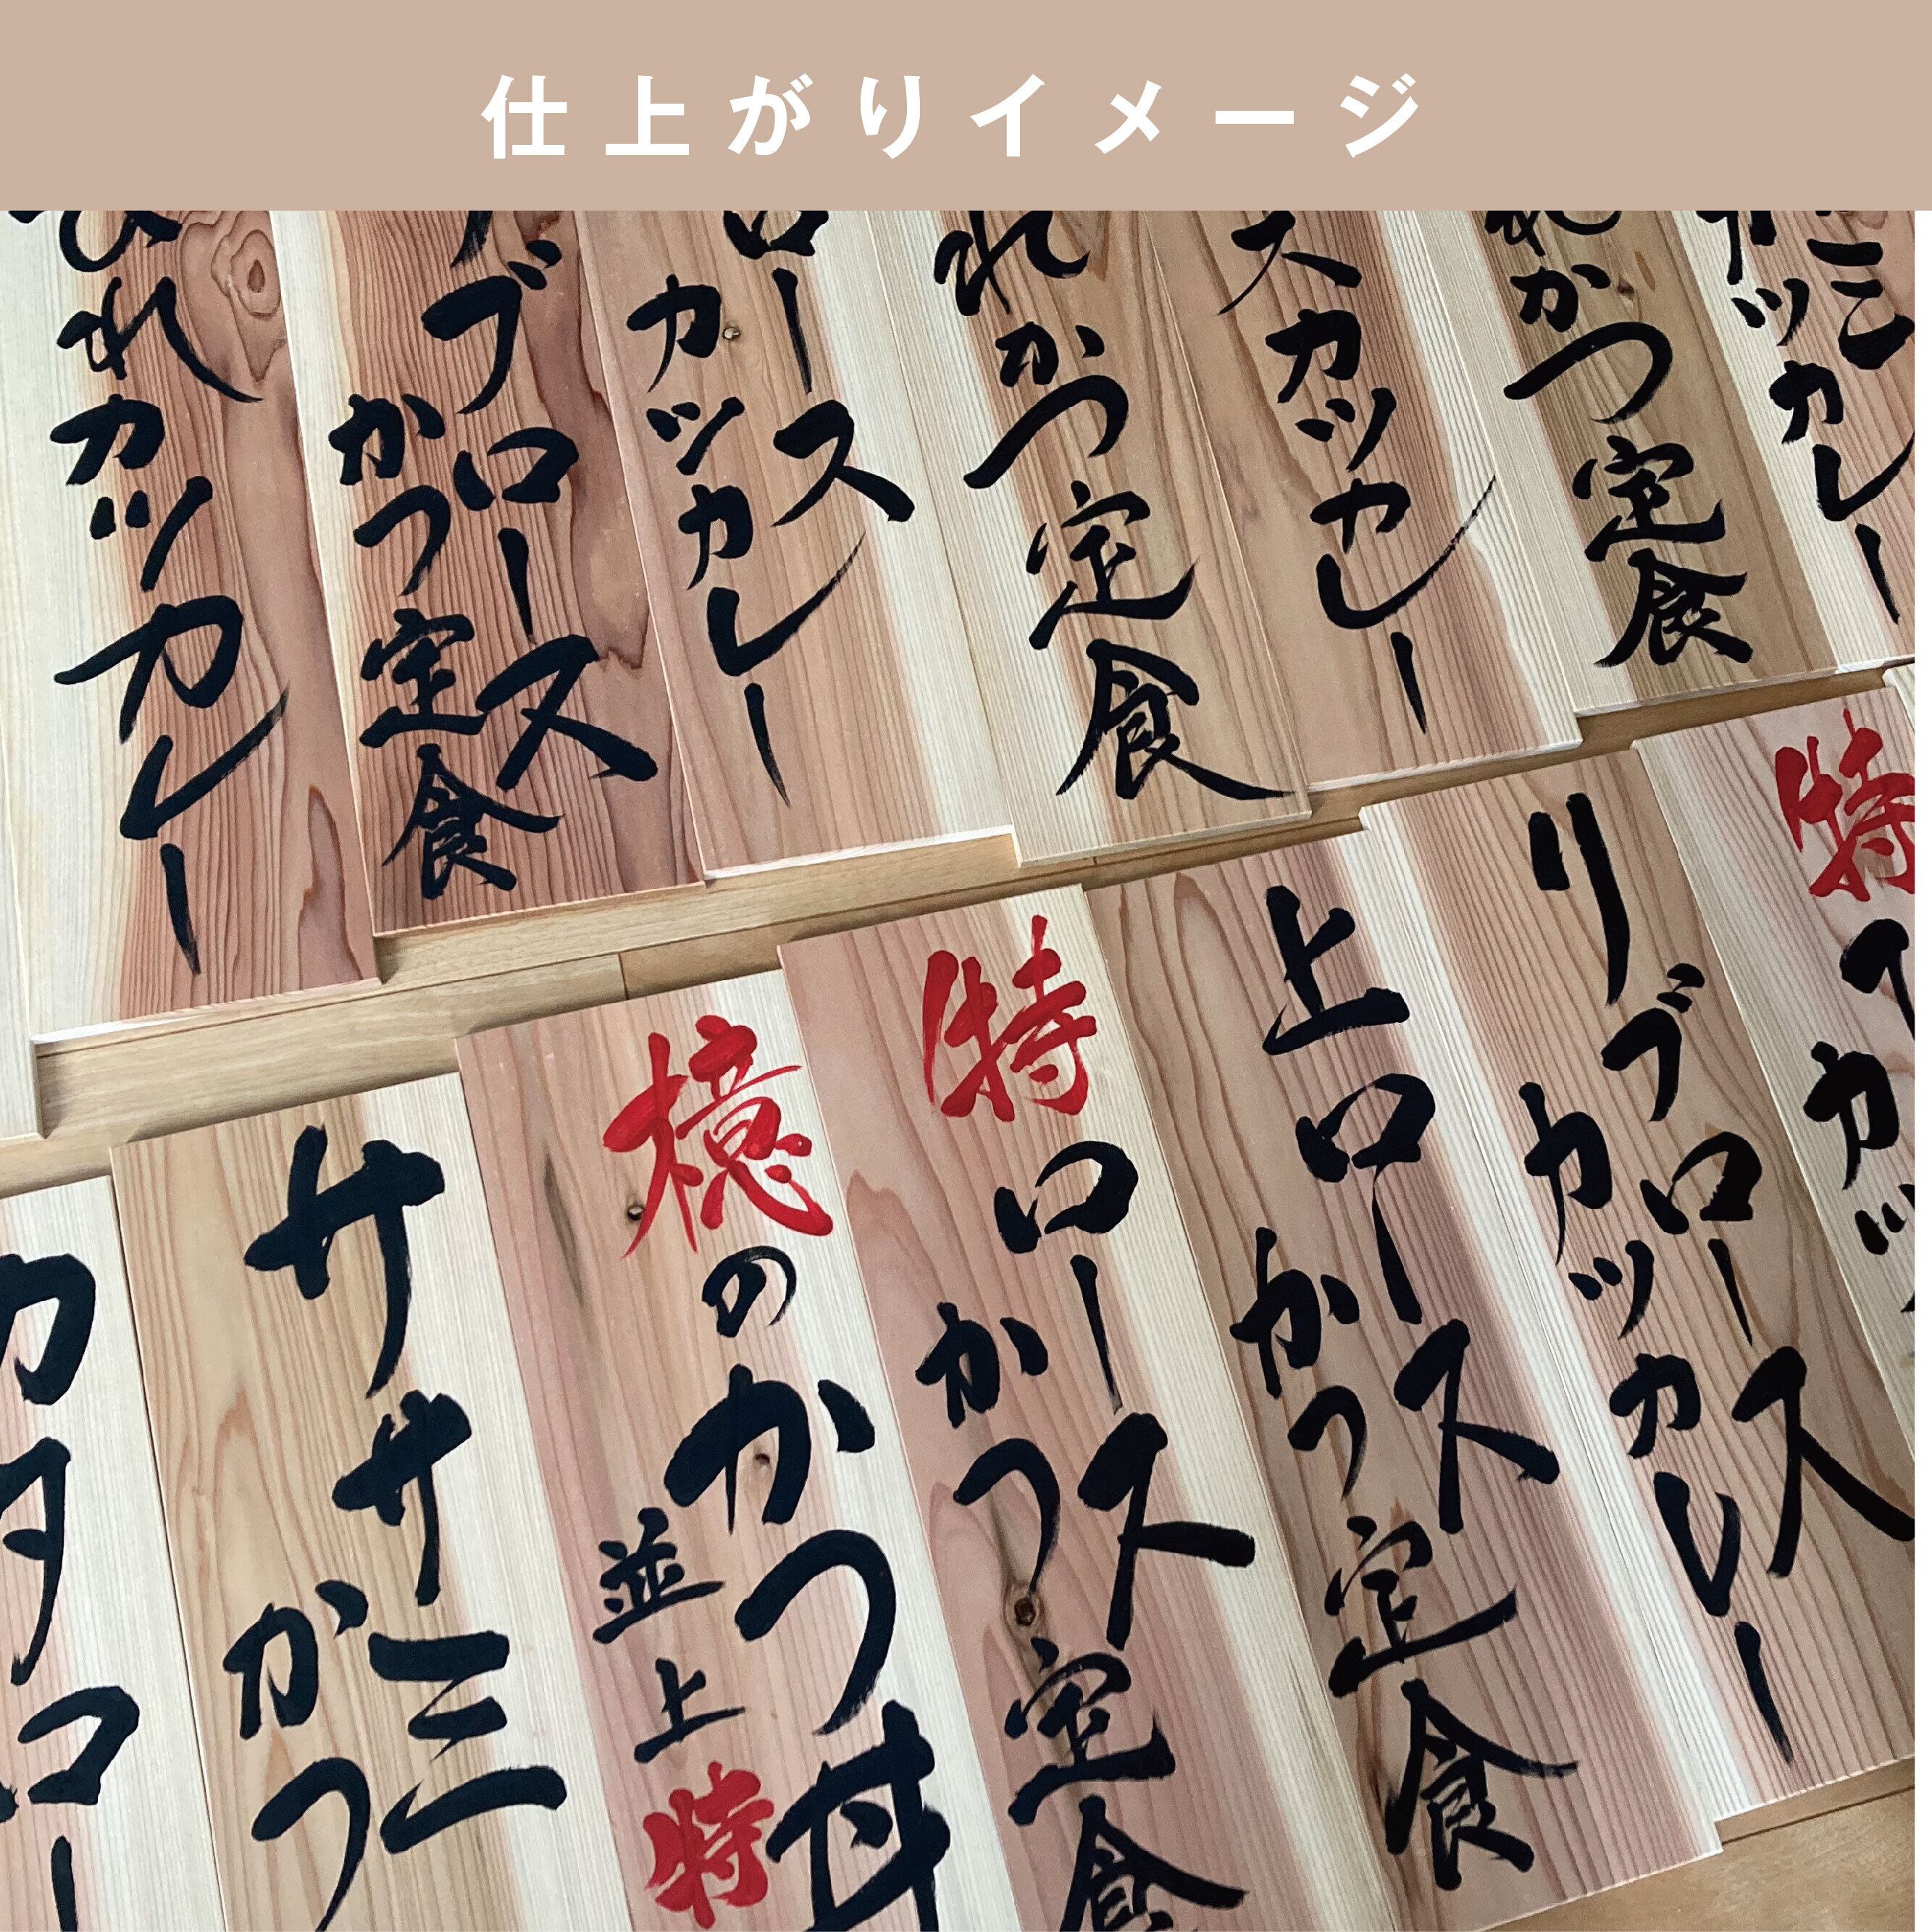 仕上がりイメージ
ミ
カツカレー
れかつ定食
スカツカレー
れかつ定食
ロース
カツカレー
ブロース
かつ定食
ひれカツカレー
特
カツ
リブロース
カツカレー
上ロース
かつ定食
特ロース
かつ定食
檍のかつ丼
並上特
ササミ
かつ
カタロー